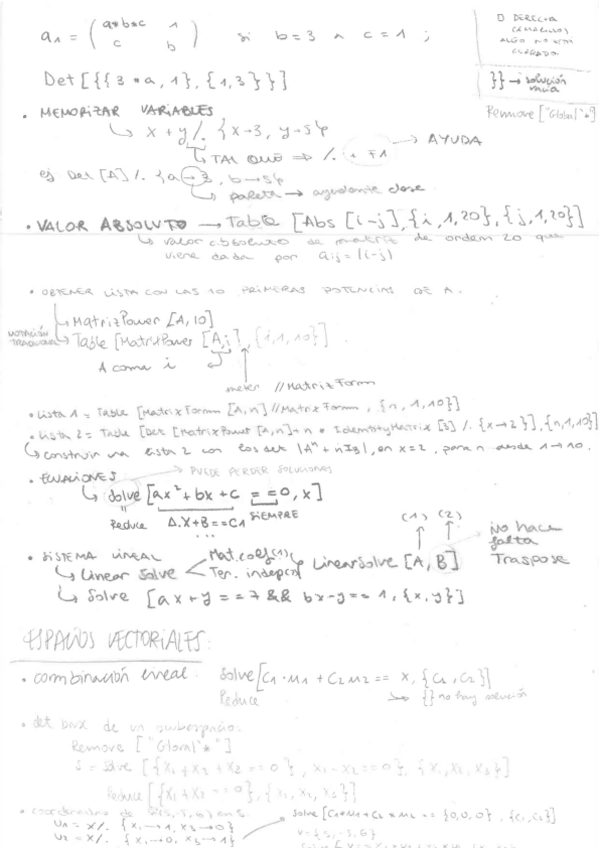 a₁ = ( a*b*c 1
c b ) si b=3 ∧ c=1 ;
D DERECHA
CAMBIAMOS
ALGO NO ESTÁ
CERRADO.
Det [{{3*a, 1}, {1,3}}]
}} → solución
vacía
Remove ["Global`*"]
• MEMORIZAR VARIABLES
↳ x + y /. {x→3, y→5}
↳ TAL QUE ⇒ /. + F1 → AYUDA
ej Det [A] /. {a→3, b→5}
↳ paleta → ayudante clase
• VALOR ABSOLUTO → Table [Abs [i-j], {i,1,20}, {j,1,20}]
↳ valor absoluto de matriz de orden 20 que
viene dada por aij = |i-j|
• OBTENER LISTA CON LAS 10 PRIMERAS POTENCIAS DE A.
↳ MatrixPower [A,10]
↳ Table [MatrixPower [A,i], {i,1,10}]
A como i
meter //MatrixForm
• Lista 1 = Table [MatrixForm [A,n] //MatrixForm, {n,1,10}]
• Lista 2 = Table [Det [MatrixPower [A,n] + n * IdentityMatrix [3] /. {x→2}], {n,1,10}]
↳ construir una lista 2 con los det |Aⁿ + nI₃|, en x=2, para n desde 1→10.
• ECUACIONES → PUEDE PERDER SOLUCIONES
↳ Solve [ax² + bx + c == 0, x]
Reduce A.X+B==C1 SIEMPRE
...
(1) (2)
• SISTEMA LINEAL
↳ Linear Solve < Mat.coef(1)
Ter. indep(2) > LinearSolve [A, B]
No hace
falta
Traspose
↳ Solve [ax+y==7 && bx-y==1, {x,y}]
ESPACIOS VECTORIALES:
• combinación lineal: Solve [C₁·u₁ + C₂u₂ == x, {C₁, C₂}]
Reduce → {} no hay solución
• det base de un subespacio.
Remove ["Global`*"]
S = Solve [{x₁+x₂+x₂==0}, x₁-x₂==0}, {x₁,x₂,x₃}]
Reduce [{x₁+x₂==0}, {x₁,x₂,x₃}]
• coordenadas de
u₁ = x/. {x₁→1, x₃→0}
u₂ = x/. {x₁→0, x₃→1}
Solve [C₁*u₁+C₂*u₂ == {0,0,0}, {C₁,C₂}]
v={5,-5,6}